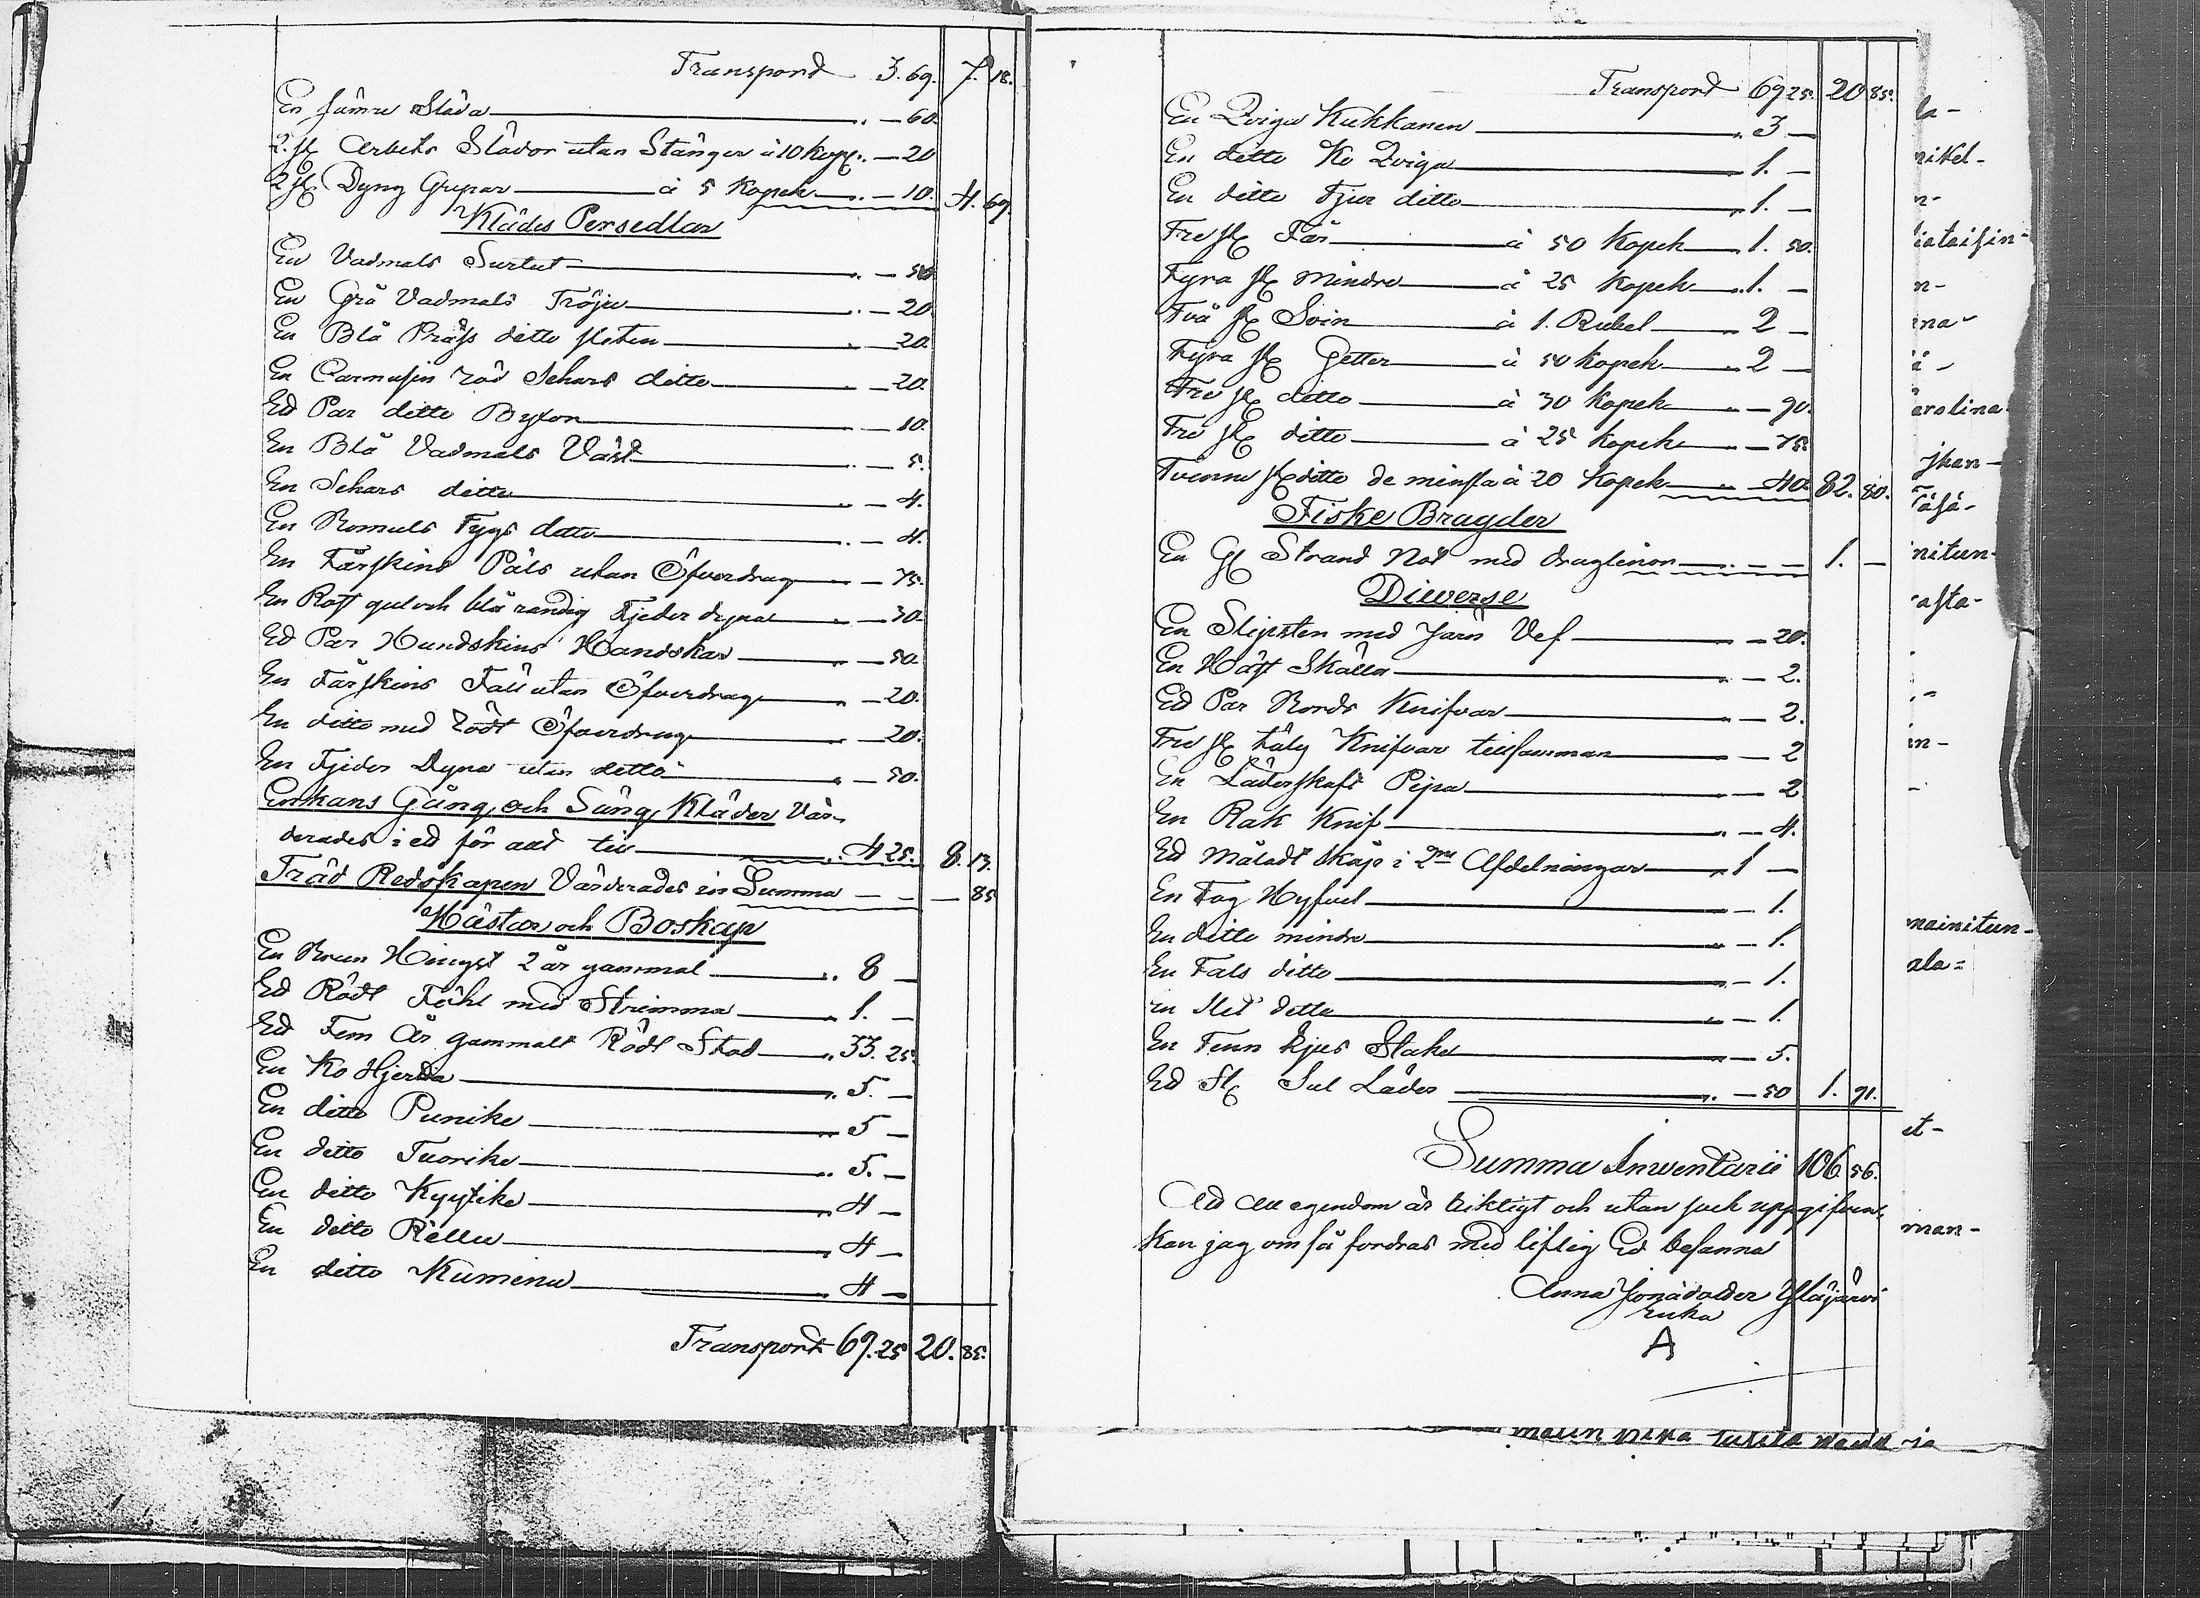 Transport 3.69. 7. 18.
En sämre Släda — 60.
2. st Arbets Slädor utan Stänger à 10 Kop. — 20
2 st Dyng Grepar à 5 Kopek — 10. 4. 69.
Klädes Persedlar
En Vadmals Surtut — 50
En Grå Vadmals Tröja — 20
En Blå ditto sleten — 20.
En Carmosin röd Schars ditto — 20.
Ett Par ditto Byxor — 10.
En Blå Vadmals Väst — 5.
En Schars ditto — 4.
En Bomuls Tygs ditto — 4.
En Fårskins Päls utan Öfverdrag — 75.
En gul och blå randig Fjeder dyna — 30.
Ett Par Hundskins Handskar — 50.
En Fårskins Fäll utan Öfverdrag — 20.
En ditto med rödt Öfverdrag — 20.
En Fjeder Dyna utan ditto — 50.
Enkans Gång och Säng Kläder Vär-
derades i ett för allt till 4 25. 8. 13.
Träd Redskapen Värderades in Summa — — — 85
Hästar och Boskap
En Brun Hingst 2 år gammal 8 —
Ett Rödt Föhl med Strimma 1. —
Ett Fem År gammalt Rödt Stod 33. 25.
En Ko Hjerda 5. —
En ditto Punike 5 —
En ditto Tuorike 5. —
En ditto Kyytike 4 —
En ditto Rellu 4 —
En ditto Kumena 4 —
Transport 69. 25 20. 85.
Transport 69 25. 20 85.
En Qviga Kukkanen 3 —
En ditto Ko Qviga 1. —
En ditto Tjur ditto 1. —
Tre st Får à 50 Kopek 1. 50.
Fyra st Mindre à 25 Kopek 1. —
Två st Svin à 1. Rubel 2 —
Fyra st Getter à 50 Kopek 2 —
Tre st ditto à 30 Kopek — 90.
Tre st ditto à 25 Kopek — 75.
Tvenne st ditto de minsta à 20 Kopek — 40. 82. 80.
Fiske Bragder
En Strand Not med draglinor — — 1. —
Diverse
En Slipsten med Jarn Vef — 20.
En Häst Skälla — 2.
Ett Par Bords Knifvar — 2.
Tre st tälg Knifvar tillsamman — 2
En Läderskaft Pipa — 2
En Rak Knif — 4.
Ett Måladt skåp i 2ne Afdelningar 1 —
En Tog Hyfvel — 1.
En ditto mindre — 1.
En Fals ditto — 1.
En Slet ditto — 1.
En Tenn Ljus Stake — 5.
Ett St Sul Läder — 50 1. 91.
Summa Inventarii 106. 56.
Att all egendom är riktigt och utan svek uppgifven,
Kan jag om så fordras med liflig Ed besanna
Anna Jonasdotter Yläjärvi
enka
A
nikel-
n-
n-
na-
arolina
jkan-
nitun-
asta-
in-
mainitun-
ala-
et-
man-